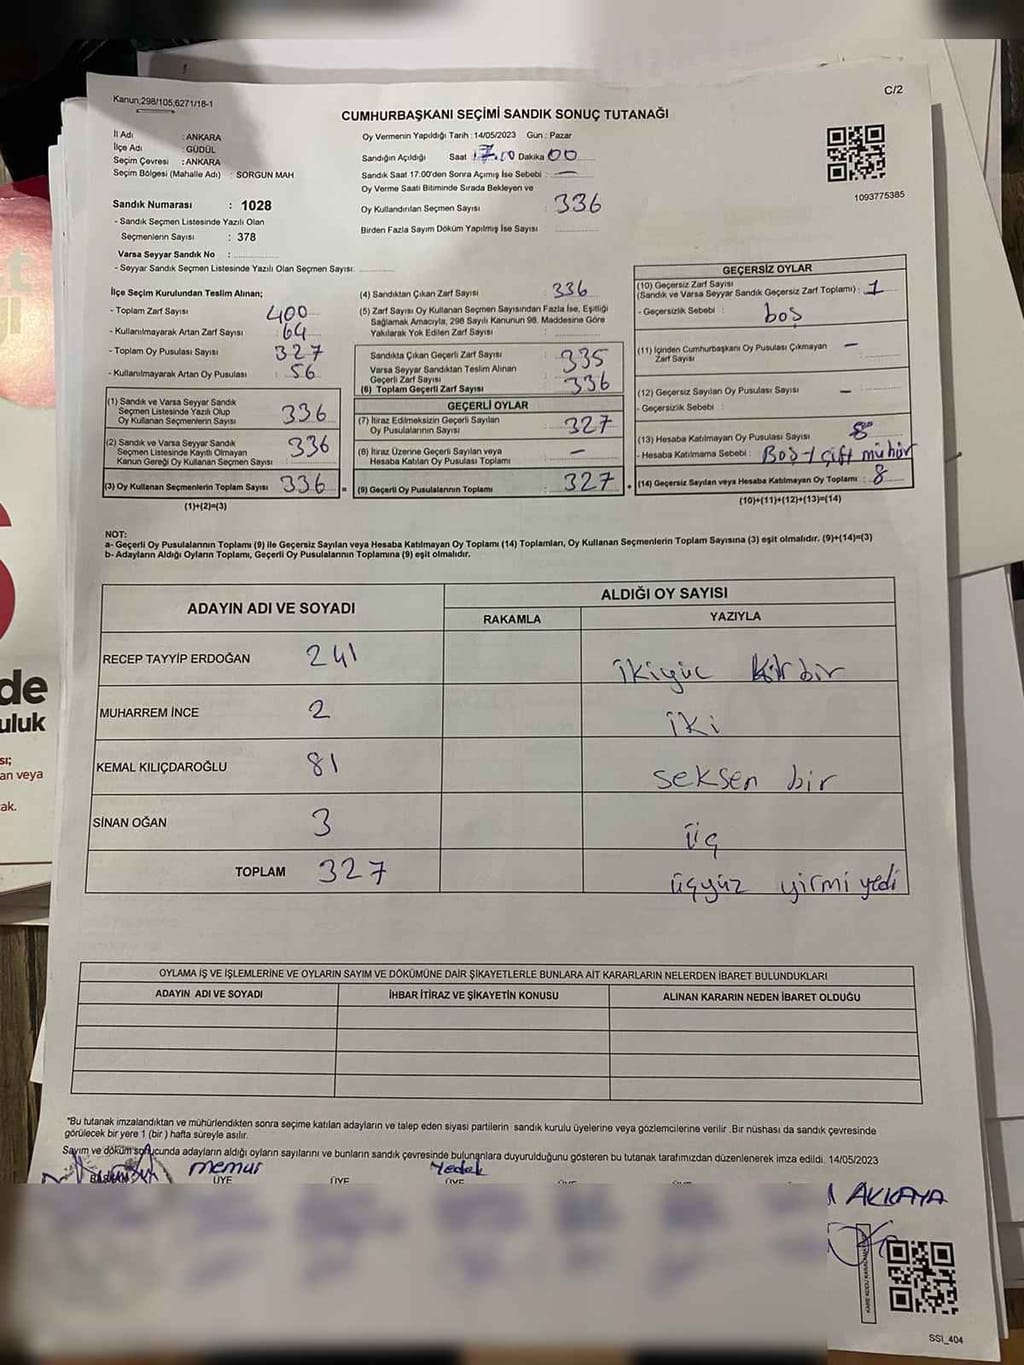 C/2
Kanun;298/105,6271/18-1
CUMHURBAŞKANI SEÇİMİ SANDIK SONUÇ TUTANAĞI
İl Adı : ANKARA
İlçe Adı : GÜDÜL
Seçim Çevresi : ANKARA
Seçim Bölgesi (Mahalle Adı) : SORGUN MAH
Sandık Numarası : 1028
- Sandık Seçmen Listesinde Yazılı Olan
Seçmenlerin Sayısı : 378
Varsa Seyyar Sandık No :
- Seyyar Sandık Seçmen Listesinde Yazılı Olan Seçmen Sayısı:
Oy Vermenin Yapıldığı Tarih :14/05/2023 Gün : Pazar
Sandığın Açıldığı Saat 17.00 Dakika 00
Sandık Saat 17:00'den Sonra Açımış İse Sebebi : —
Oy Verme Saati Bitiminde Sırada Bekleyen ve
Oy Kullandırılan Seçmen Sayısı : 336
Birden Fazla Sayım Döküm Yapılmış İse Sayısı :
1093775385
İlçe Seçim Kurulundan Teslim Alınan;
- Toplam Zarf Sayısı : 400
- Kullanılmayarak Artan Zarf Sayısı : 64
- Toplam Oy Pusulası Sayısı : 327
- Kullanılmayarak Artan Oy Pusulası : 56
(1) Sandık ve Varsa Seyyar Sandık
Seçmen Listesinde Yazılı Olup
Oy Kullanan Seçmenlerin Sayısı : 336
(2) Sandık ve Varsa Seyyar Sandık
Seçmen Listesinde Kayıtlı Olmayan
Kanun Gereği Oy Kullanan Seçmen Sayısı : 336
(3) Oy Kullanan Seçmenlerin Toplam Sayısı : 336 =
(1)+(2)=(3)
(4) Sandıktan Çıkan Zarf Sayısı : 336
(5) Zarf Sayısı Oy Kullanan Seçmen Sayısından Fazla İse, Eşitliği
Sağlamak Amacıyla; 298 Sayılı Kanunun 98. Maddesine Göre
Yakılarak Yok Edilen Zarf Sayısı :
Sandıkta Çıkan Geçerli Zarf Sayısı : 335
Varsa Seyyar Sandıktan Teslim Alınan
Geçerli Zarf Sayısı
(6) Toplam Geçerli Zarf Sayısı : 336
GEÇERLİ OYLAR
(7) İtiraz Edilmeksizin Geçerli Sayılan
Oy Pusulalarının Sayısı : 327
(8) İtiraz Üzerine Geçerli Sayılan veya
Hesaba Katılan Oy Pusulası Toplamı : —
(9) Geçerli Oy Pusulalarının Toplamı : 327 +
GEÇERSİZ OYLAR
(10) Geçersiz Zarf Sayısı
(Sandık ve Varsa Seyyar Sandık Geçersiz Zarf Toplamı) : 1
- Geçersizlik Sebebi : boş
(11) İçinden Cumhurbaşkanı Oy Pusulası Çıkmayan —
Zarf Sayısı :
(12) Geçersiz Sayılan Oy Pusulası Sayısı : —
- Geçersizlik Sebebi :
(13) Hesaba Katılmayan Oy Pusulası Sayısı : 8
- Hesaba Katılmama Sebebi : Boş-1 çift mühür
(14) Geçersiz Sayılan veya Hesaba Katılmayan Oy Toplamı : 8
(10)+(11)+(12)+(13)=(14)
NOT:
a- Geçerli Oy Pusulalarının Toplamı (9) ile Geçersiz Sayılan veya Hesaba Katılmayan Oy Toplamı (14) Toplamları, Oy Kullanan Seçmenlerin Toplam Sayısına (3) eşit olmalıdır. (9)+(14)=(3)
b- Adayların Aldığı Oyların Toplamı, Geçerli Oy Pusulalarının Toplamına (9) eşit olmalıdır.
ADAYIN ADI VE SOYADI
ALDIĞI OY SAYISI
RAKAMLA YAZIYLA
RECEP TAYYİP ERDOĞAN 241 ikiyüz kırkbir
MUHARREM İNCE 2 iki
KEMAL KILIÇDAROĞLU 81 seksen bir
SİNAN OĞAN 3 üç
TOPLAM 327 üçyüz yirmi yedi
OYLAMA İŞ VE İŞLEMLERİNE VE OYLARIN SAYIM VE DÖKÜMÜNE DAİR ŞİKAYETLERLE BUNLARA AİT KARARLARIN NELERDEN İBARET BULUNDUKLARI
ADAYIN ADI VE SOYADI İHBAR İTİRAZ VE ŞİKAYETİN KONUSU ALINAN KARARIN NEDEN İBARET OLDUĞU
*Bu tutanak imzalandıktan ve mühürlendikten sonra seçime katılan adayların ve talep eden siyasi partilerin sandık kurulu üyelerine veya gözlemcilerine verilir .Bir nüshası da sandık çevresinde
görülecek bir yere 1 (bir) hafta süreyle asılır.
Sayım ve döküm sonucunda adayların aldığı oyların sayılarını ve bunların sandık çevresinde bulunanlara duyurulduğunu gösteren bu tutanak tarafımızdan düzenlenerek imza edildi. 14/05/2023
memur Yedek
BAŞKAN ÜYE ÜYE ÜYE ÜYE ÜYE ÜYE
AKKAYA
SSİ_404
de
uluk
sı;
an veya
ak.